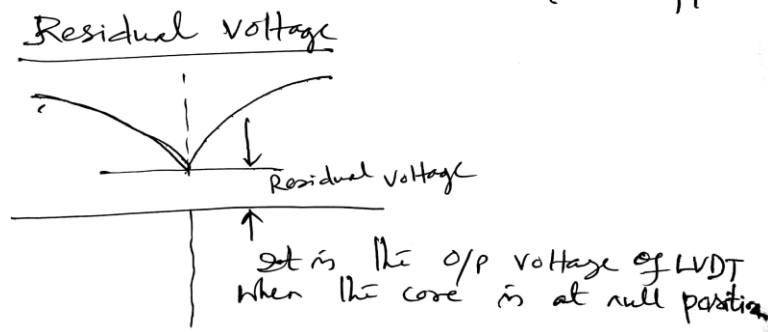 Residual Voltage
Residual Voltage
It is the O/P Voltage of LVDT
when the core is at null position